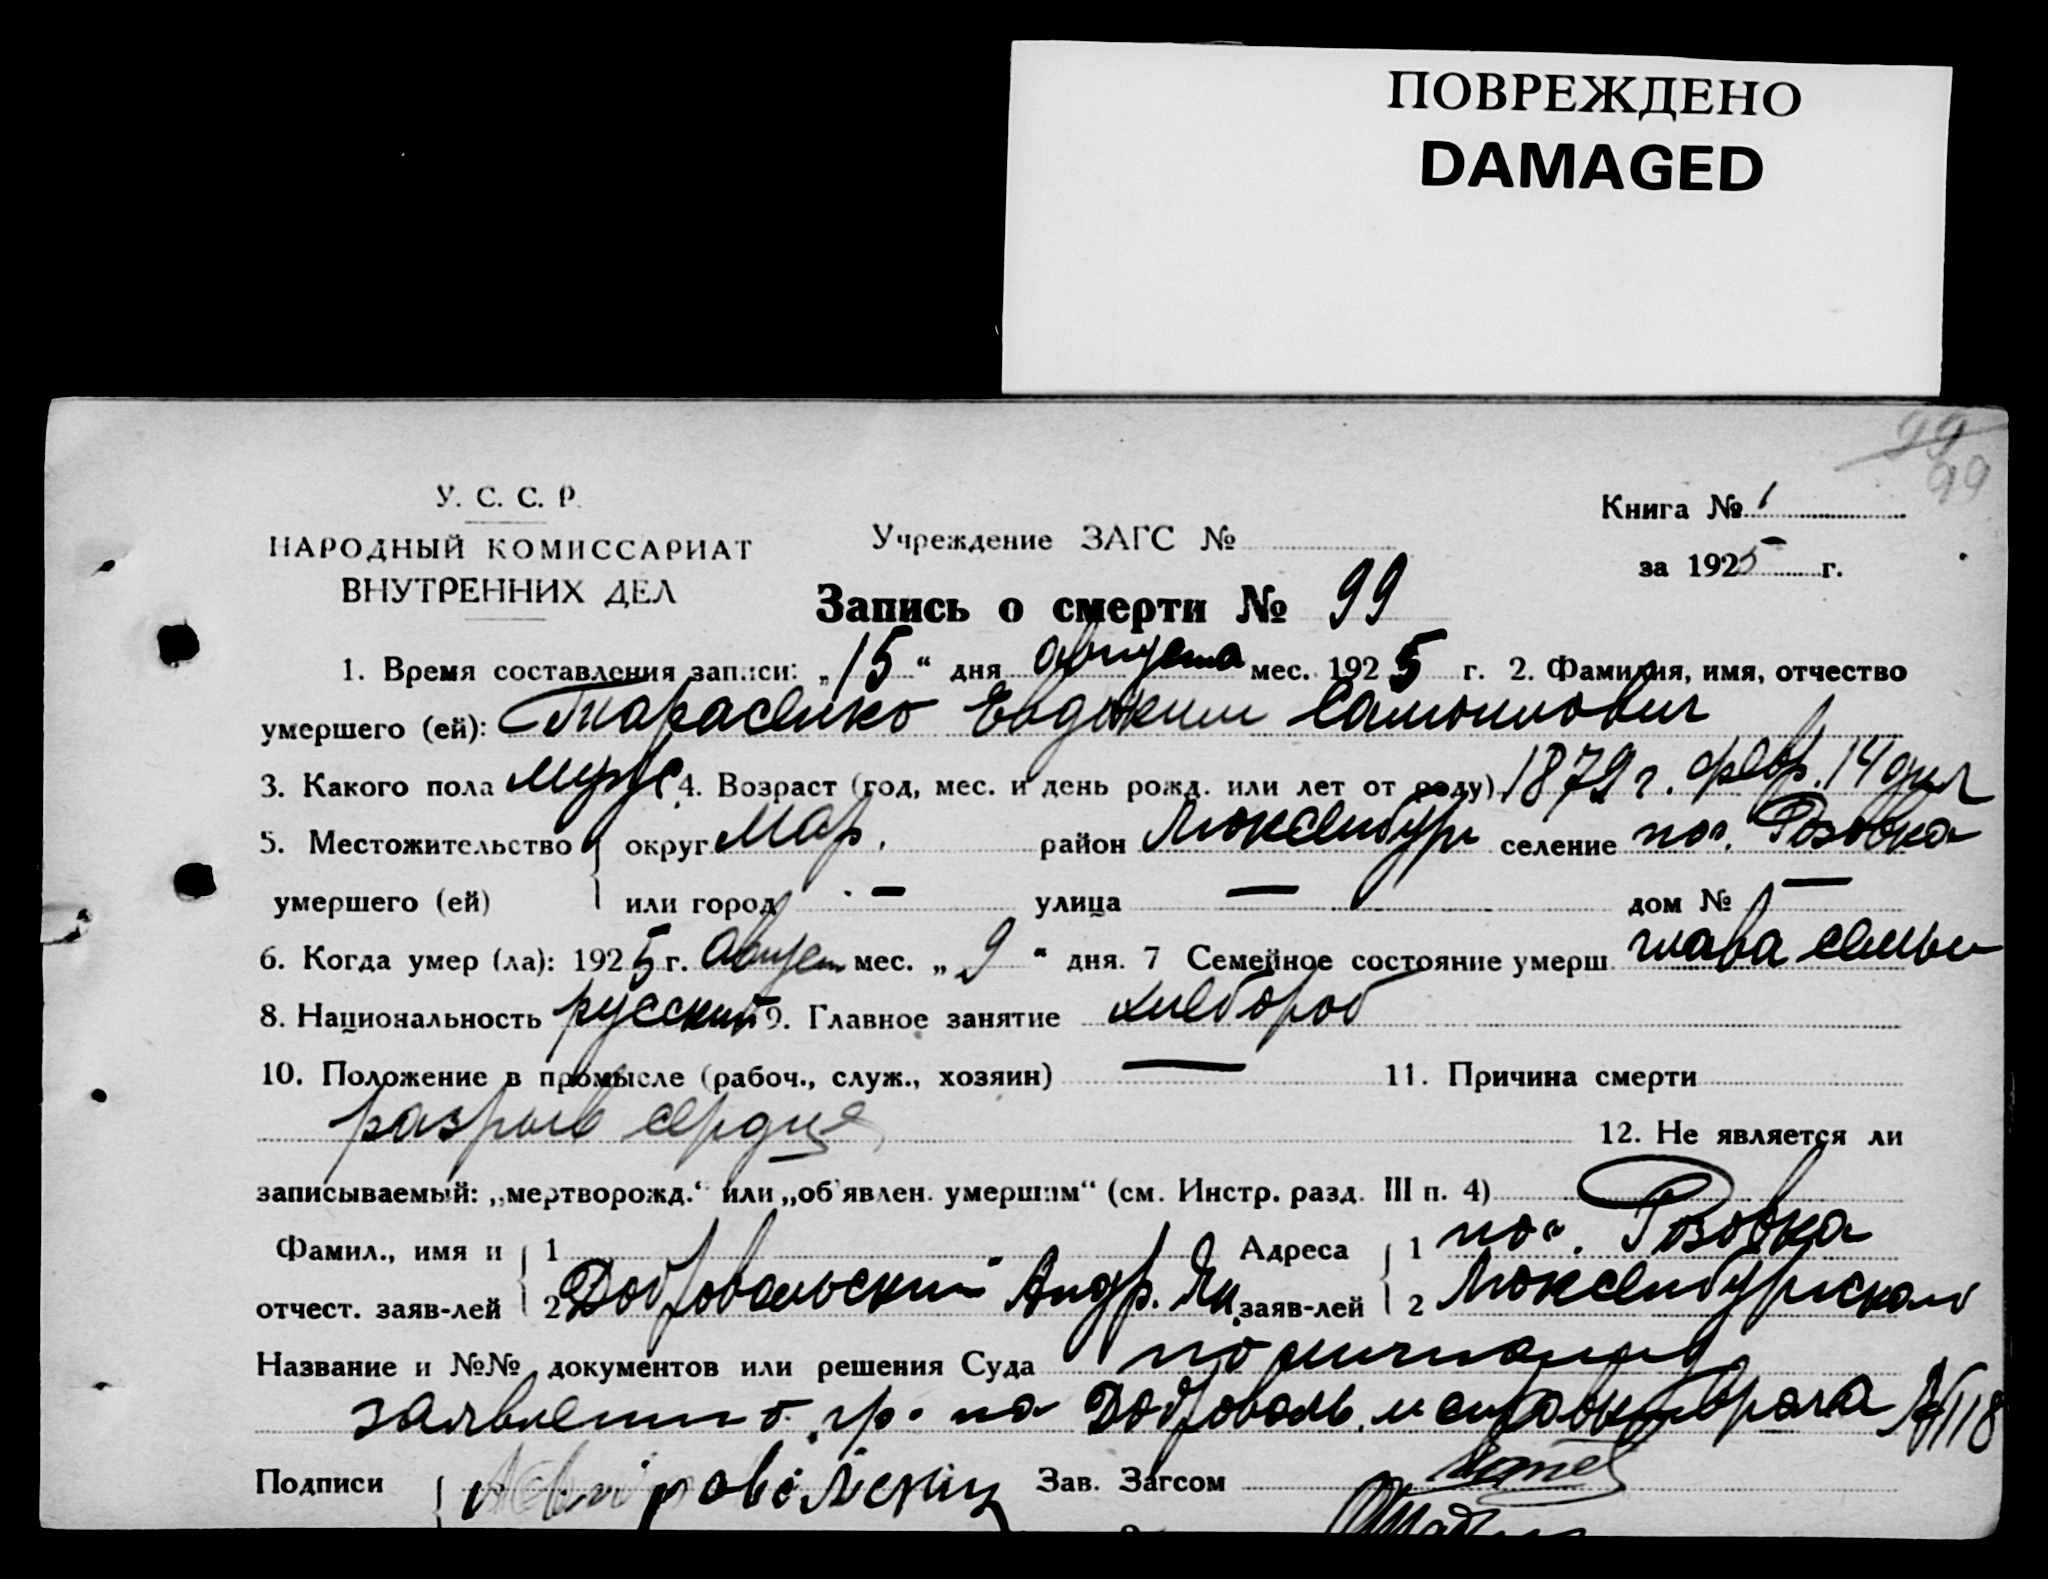 ПОВРЕЖДЕНО
DAMAGED
99
99
У. С. С. Р.
НАРОДНЫЙ КОМИССАРИАТ
ВНУТРЕННИХ ДЕЛ
Учреждение ЗАГС №
Книга № 1
за 1925 г.
Запись о смерти № 99
1. Время составления записи: „15“ дня августа мес. 1925 г. 2. Фамилия, имя, отчество
умершего (ей): Тарасенко Евдоким Самоилович
3. Какого пола муж 4. Возраст (год, мес. и день рожд. или лет от роду) 1879 г. февр. 14 дня
5. Местожительство округ Мар. район Люксембург селение пос. Розовка
умершего (ей) или город — улица — дом № —
6. Когда умер (ла): 1925 г. август мес. „9“ дня. 7 Семейное состояние умерш. глава семьи
8. Национальность русский 9. Главное занятие хлебороб
10. Положение в промысле (рабоч., служ., хозяин) — 11. Причина смерти
разрыв сердца 12. Не является ли
записываемый: „мертворожд.“ или „об'явлен. умершим“ (см. Инстр. разд. III п. 4)
Фамил., имя и 1 Адреса 1 пос. Розовка
отчест. заяв-лей 2 Добровольский Андр. Як. заяв-лей 2 Люксембургского
Название и №№ документов или решения Суда по личному
заявлению гр. на Доброволь. и справки врача №118
Подписи Зав. Загсом